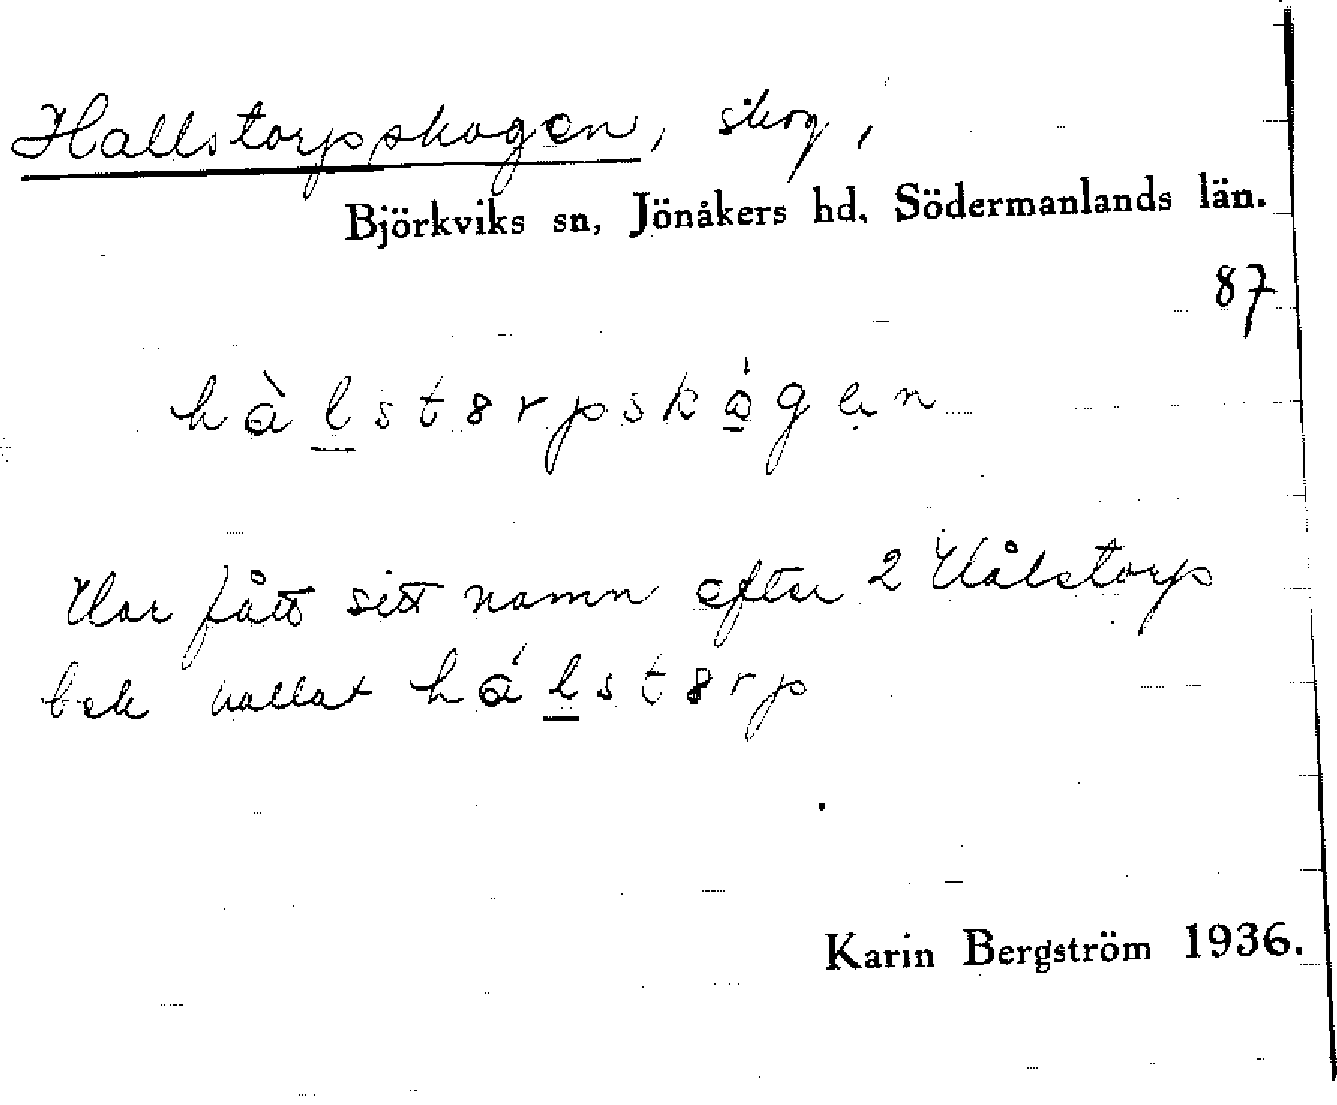 Hallstorpskogen, skog,
Björkviks sn, Jönåkers hd, Södermanlands län.
87
hàlstɤrpskógen
Har fått sitt namn efter 2 Hålstorp
kallat hálstɤrp
Karin Bergström 1936.